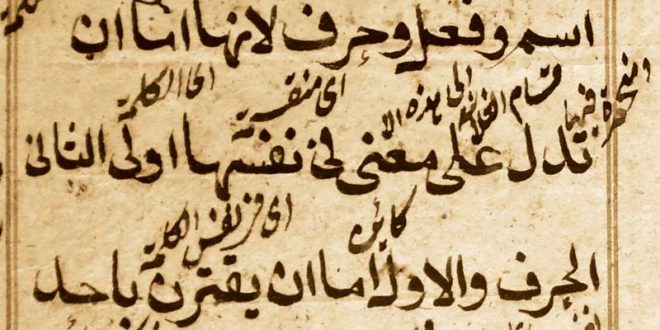 اسم وفعل وحرف لانها اما ان
المنحصرة فيها الى هذه الا قسام الثلاثة اى منقسمة اى الكلمة
تدل على معنى فى نفسها اولى الثانى
كائن اى فى نفس الكلمة
الحرف والاول اما ان يقترن باحد